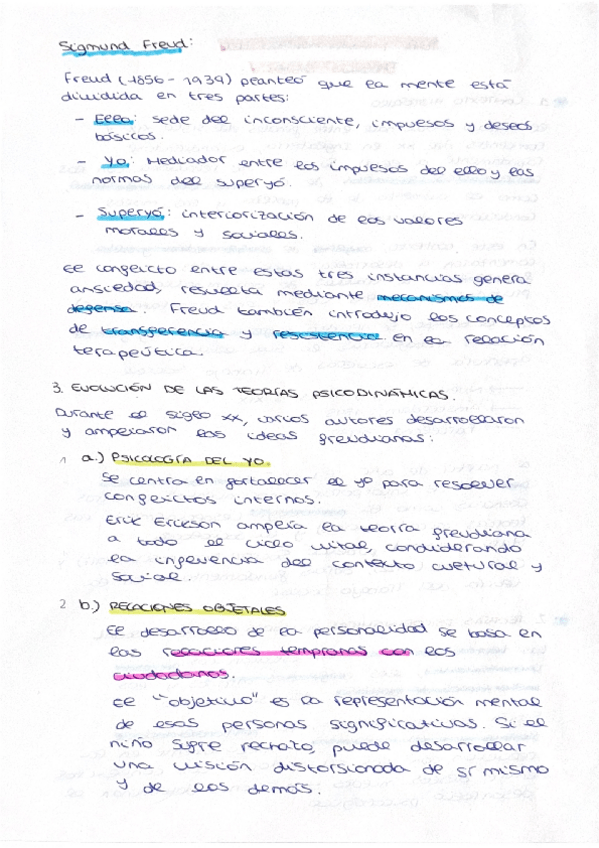 Sigmund Freud:
Freud (1856 - 1939) planteó que la mente está
dividida en tres partes:
- Ello: sede del inconsciente, impulsos y deseos
básicos.
- Yo: Mediador entre los impulsos del ello y las
normas del superyó.
- Superyó: interiorización de los valores
morales y sociales.
El conflicto entre estas tres instancias genera
ansiedad, resuelta mediante mecanismos de
defensa. Freud también introdujo los conceptos
de transferencia y resistencia en la relación
terapéutica.
3. EVOLUCIÓN DE LAS TEORÍAS PSICODINÁMICAS.
Durante el siglo XX, varios autores desarrollaron
y ampliaron las ideas freudianas:
1 a.) PSICOLOGÍA DEL YO.
Se centra en fortalecer el yo para resolver
conflictos internos.
Erik Erikson amplía la teoría freudiana
a todo el ciclo vital, condiderando
la influencia del contexto cultural y
social.
2 b.) RELACIONES OBJETALES
El desarrollo de la personalidad se basa en
las relaciones tempranas con los
ciudadanos.
El "objetivo" es la representación mental
de esas personas significativas. Si el
niño sufre rechazo, puede desarrollar
una visión distorsionada de sí mismo
y de los demás.